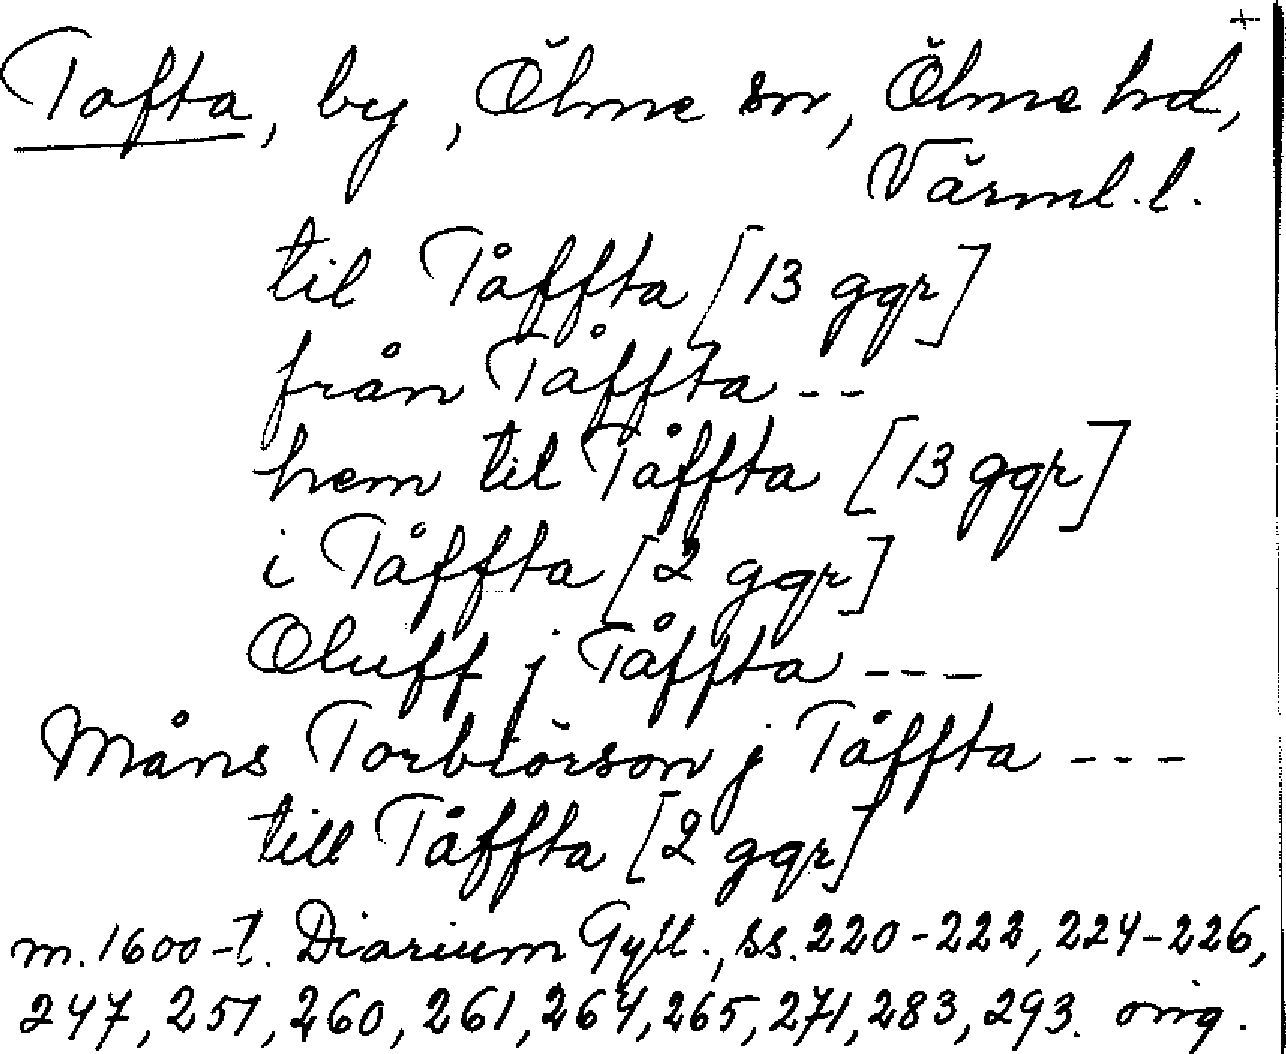 +
Tofta, by, Ölme sn, Ölme hd,
Värml.l.
til Tåffta [13 ggr]
från Tåffta --
hem til Tåffta [13 ggr]
i Tåffta [2 ggr]
Oluff j Tåffta ---
Måns Torbiörson j Tåffta ---
till Tåffta [2 ggr]
m. 1600-t. Diarium Gyll., ss. 220-222, 224-226,
247, 251, 260, 261, 264, 265, 271, 283, 293. orig.